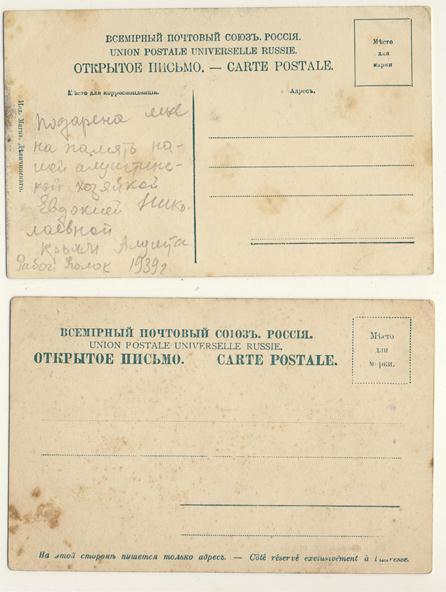 ВСЕМІРНЫЙ ПОЧТОВЫЙ СОЮЗЪ. РОССІЯ.
UNION POSTALE UNIVERSELLE RUSSIE.
ОТКРЫТОЕ ПИСЬМО. — CARTE POSTALE.
Мѣсто
для
марки
Мѣсто для корреспонденціи.
Адресъ.
Изд. Магаз.
Подарена мне
на память на-
шей алуштинс-
кой хозяйкой
Евдокией Нико-
лаевной
Крым Алушта
1939 г
ВСЕМІРНЫЙ ПОЧТОВЫЙ СОЮЗЪ. РОССІЯ.
UNION POSTALE UNIVERSELLE RUSSIE.
ОТКРЫТОЕ ПИСЬМО. CARTE POSTALE.
Мѣсто
для
марки.
На этой сторонѣ пишется только адресъ. — Côté réservé exclusivement à l'adresse.